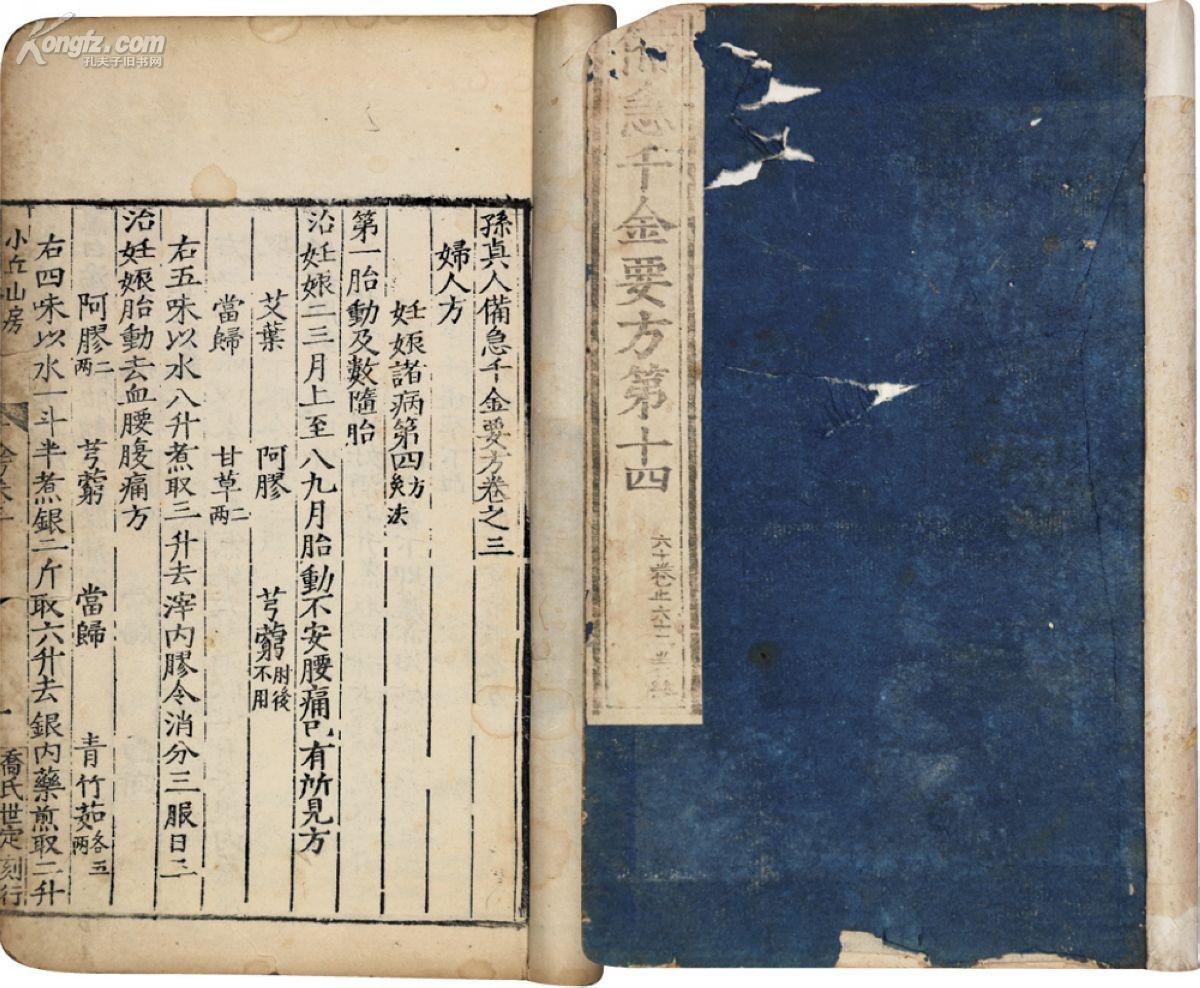 Kongfz.com
孔夫子旧书网
急千金要方第十四
孫真人備急千金要方卷之三
婦人方
妊娠諸病第四
第一胎動及數墮胎
治妊娠二三月上至八九月胎動不安腰痛已有所見方
艾葉 阿膠 芎藭肘後不用
當歸 甘草二兩
右五味以水八升煮取三升去滓内膠令消分三服日三
治妊娠胎動去血腰腹痛方
阿膠二兩 芎藭 當歸 青竹茹各五兩
右四味以水一斗半煮銀二斤取六升去銀内藥煎取二升
小丘山房
喬氏世定刻行